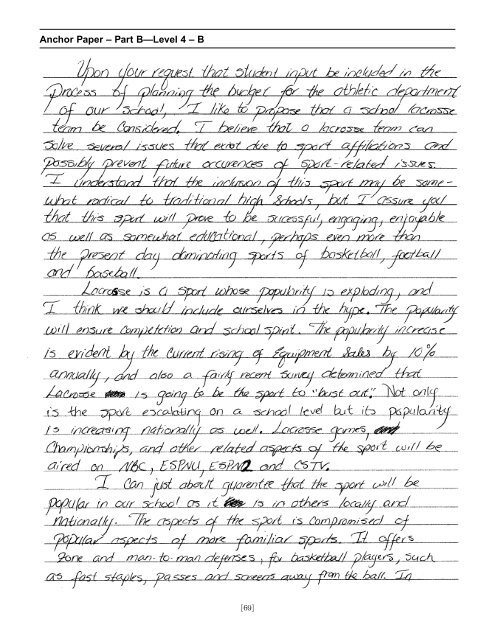 Anchor Paper – Part B—Level 4 – B
Upon your request that student input be included in the
process of planning the budget for the athletic department
of our school, I like to propose that a school lacrosse
team be considered. I believe that a lacrosse team can
solve several issues that exist due to sport affiliations and
possibly prevent future occurences of sport-related issues.
I understand that the inclusion of this sport may be some-
what radical to traditional high schools, but I assure you
that this sport will prove to be sucessful, engaging, enjoyable
as well as somewhat educational, perhaps even more than
the present day dominating sports of basketball, football
and baseball.
Lacrosse is a sport whose popularity is exploding, and
I think we should include ourselves in the hype. The popularity
will ensure competetion and school spirit. The popularity increase
is evident by the current rising of Equipment Sales by 10%
annually, and also a fairly recent survey determined that
Lacrosse is going to be the sport to "bust out". Not only
is the sport escalating on a school level but its popularity
is increasing nationally as well. Lacrosse games,
Championships, and other related aspects of the sport will be
aired on NBC, ESPNU, ESPN2 and CSTV.
I can just about guarentee that the sport will be
popular in our school as it is in others locally and
nationally. The aspects of the sport is compromised of
popular aspects of more familiar sports. It offers
zone and man-to-man defenses, for basketball players, such
as fast staples, passes and screens away from the ball. In
[69]